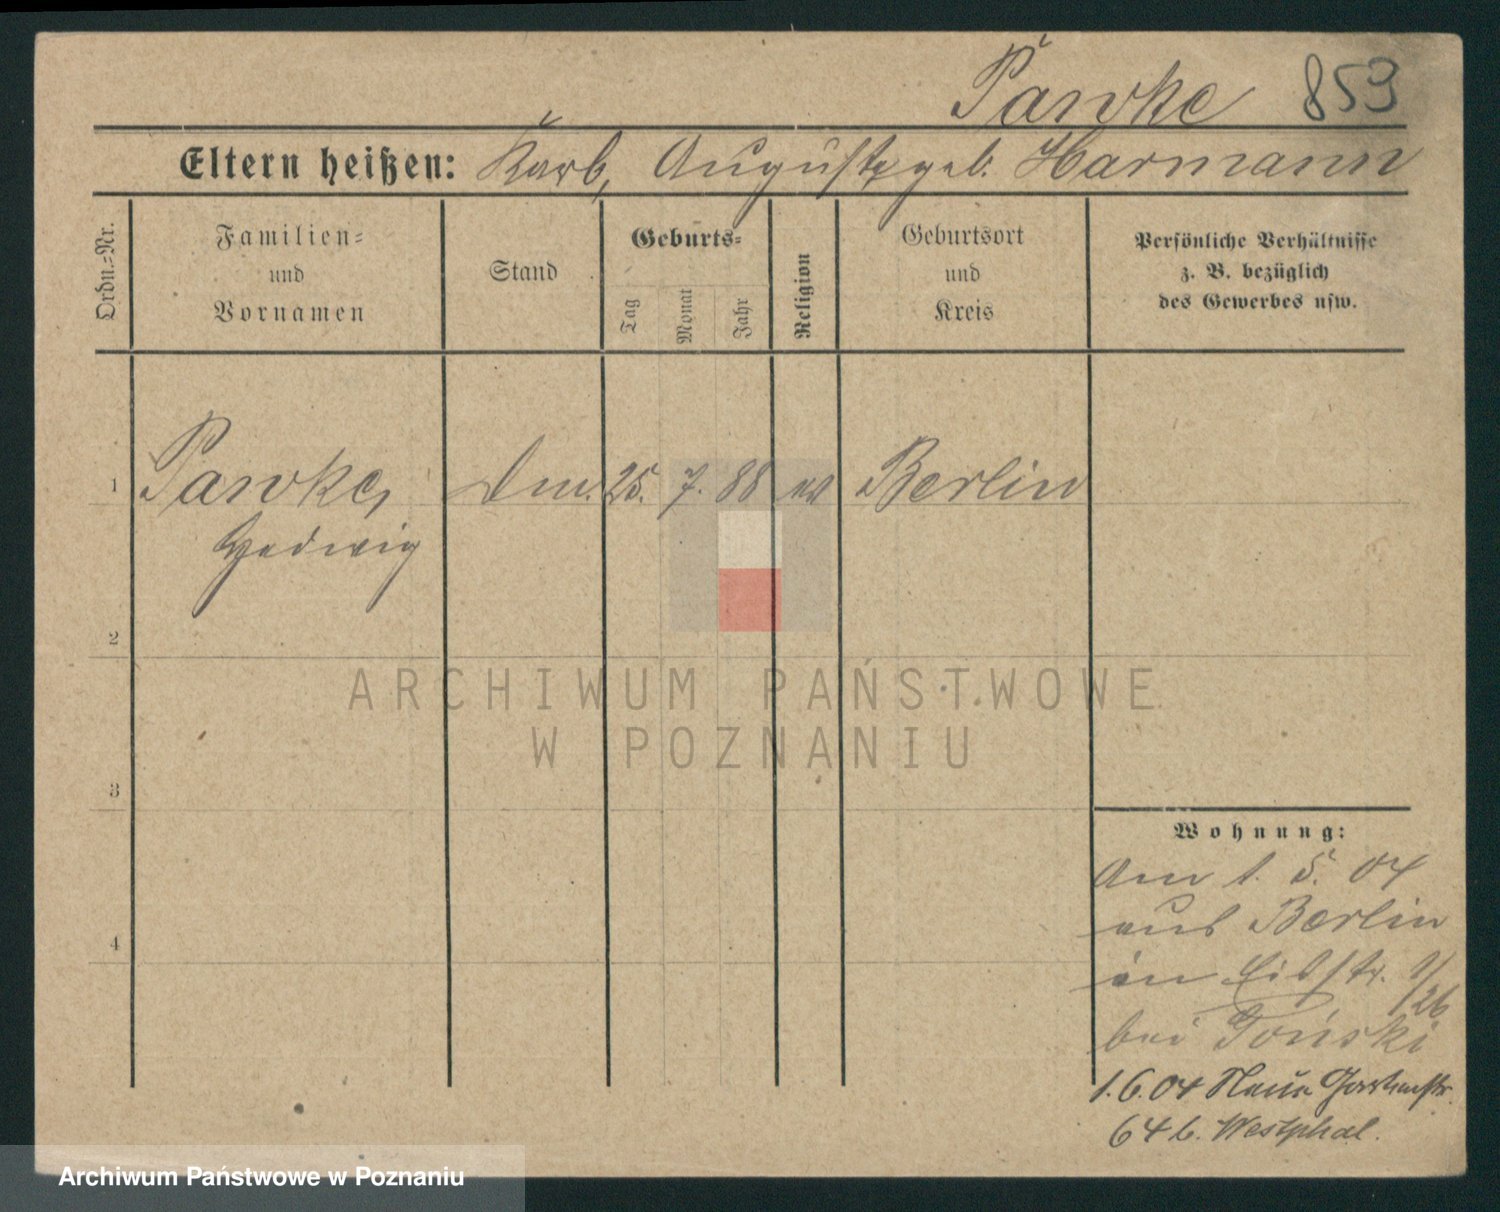 Pawke 853
Eltern heißen: Karl, Auguste geb. Harmann
Ordn.-Nr.
Familien-
und
Vornamen
Stand
Geburts-
Tag
Monat
Jahr
Religion
Geburtsort
und
Kreis
Persönliche Verhältnisse
z. B. bezüglich
des Gewerbes usw.
1 Pawke, 25. 7. 88 ev Berlin
Hedwig
2
ARCHIWUM PAŃSTWOWE
W POZNANIU
3
Wohnung:
Am 1. 5. 04
aus Berlin
in
bei Toński
4
1.6.04 Neue Gartenstr.
64 b. Westphal.
Archiwum Państwowe w Poznaniu